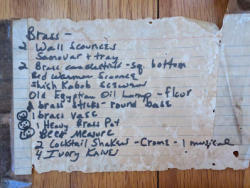 Brass -
2 Wall Scounces
Samovar + tray
2 Brass candlesticks - sq. bottom
Red Warman Sconce
Shish Kabob Scewers
Old Egyptian Oil Lamp - floor
brass sticks - round base
1 brass vase
1 Heavy Brass Pot
Beer Measure
2 Cocktail Shakers - Crome - 1 musical
4 Ivory Knives